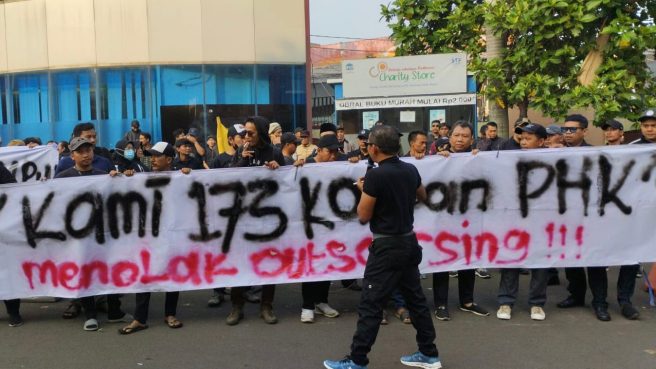 Charity Store
OBRAL BUKU MURAH MULAI Rp2.000
"Kami 173 KORBAN PHK"
menolak outsourcing !!!